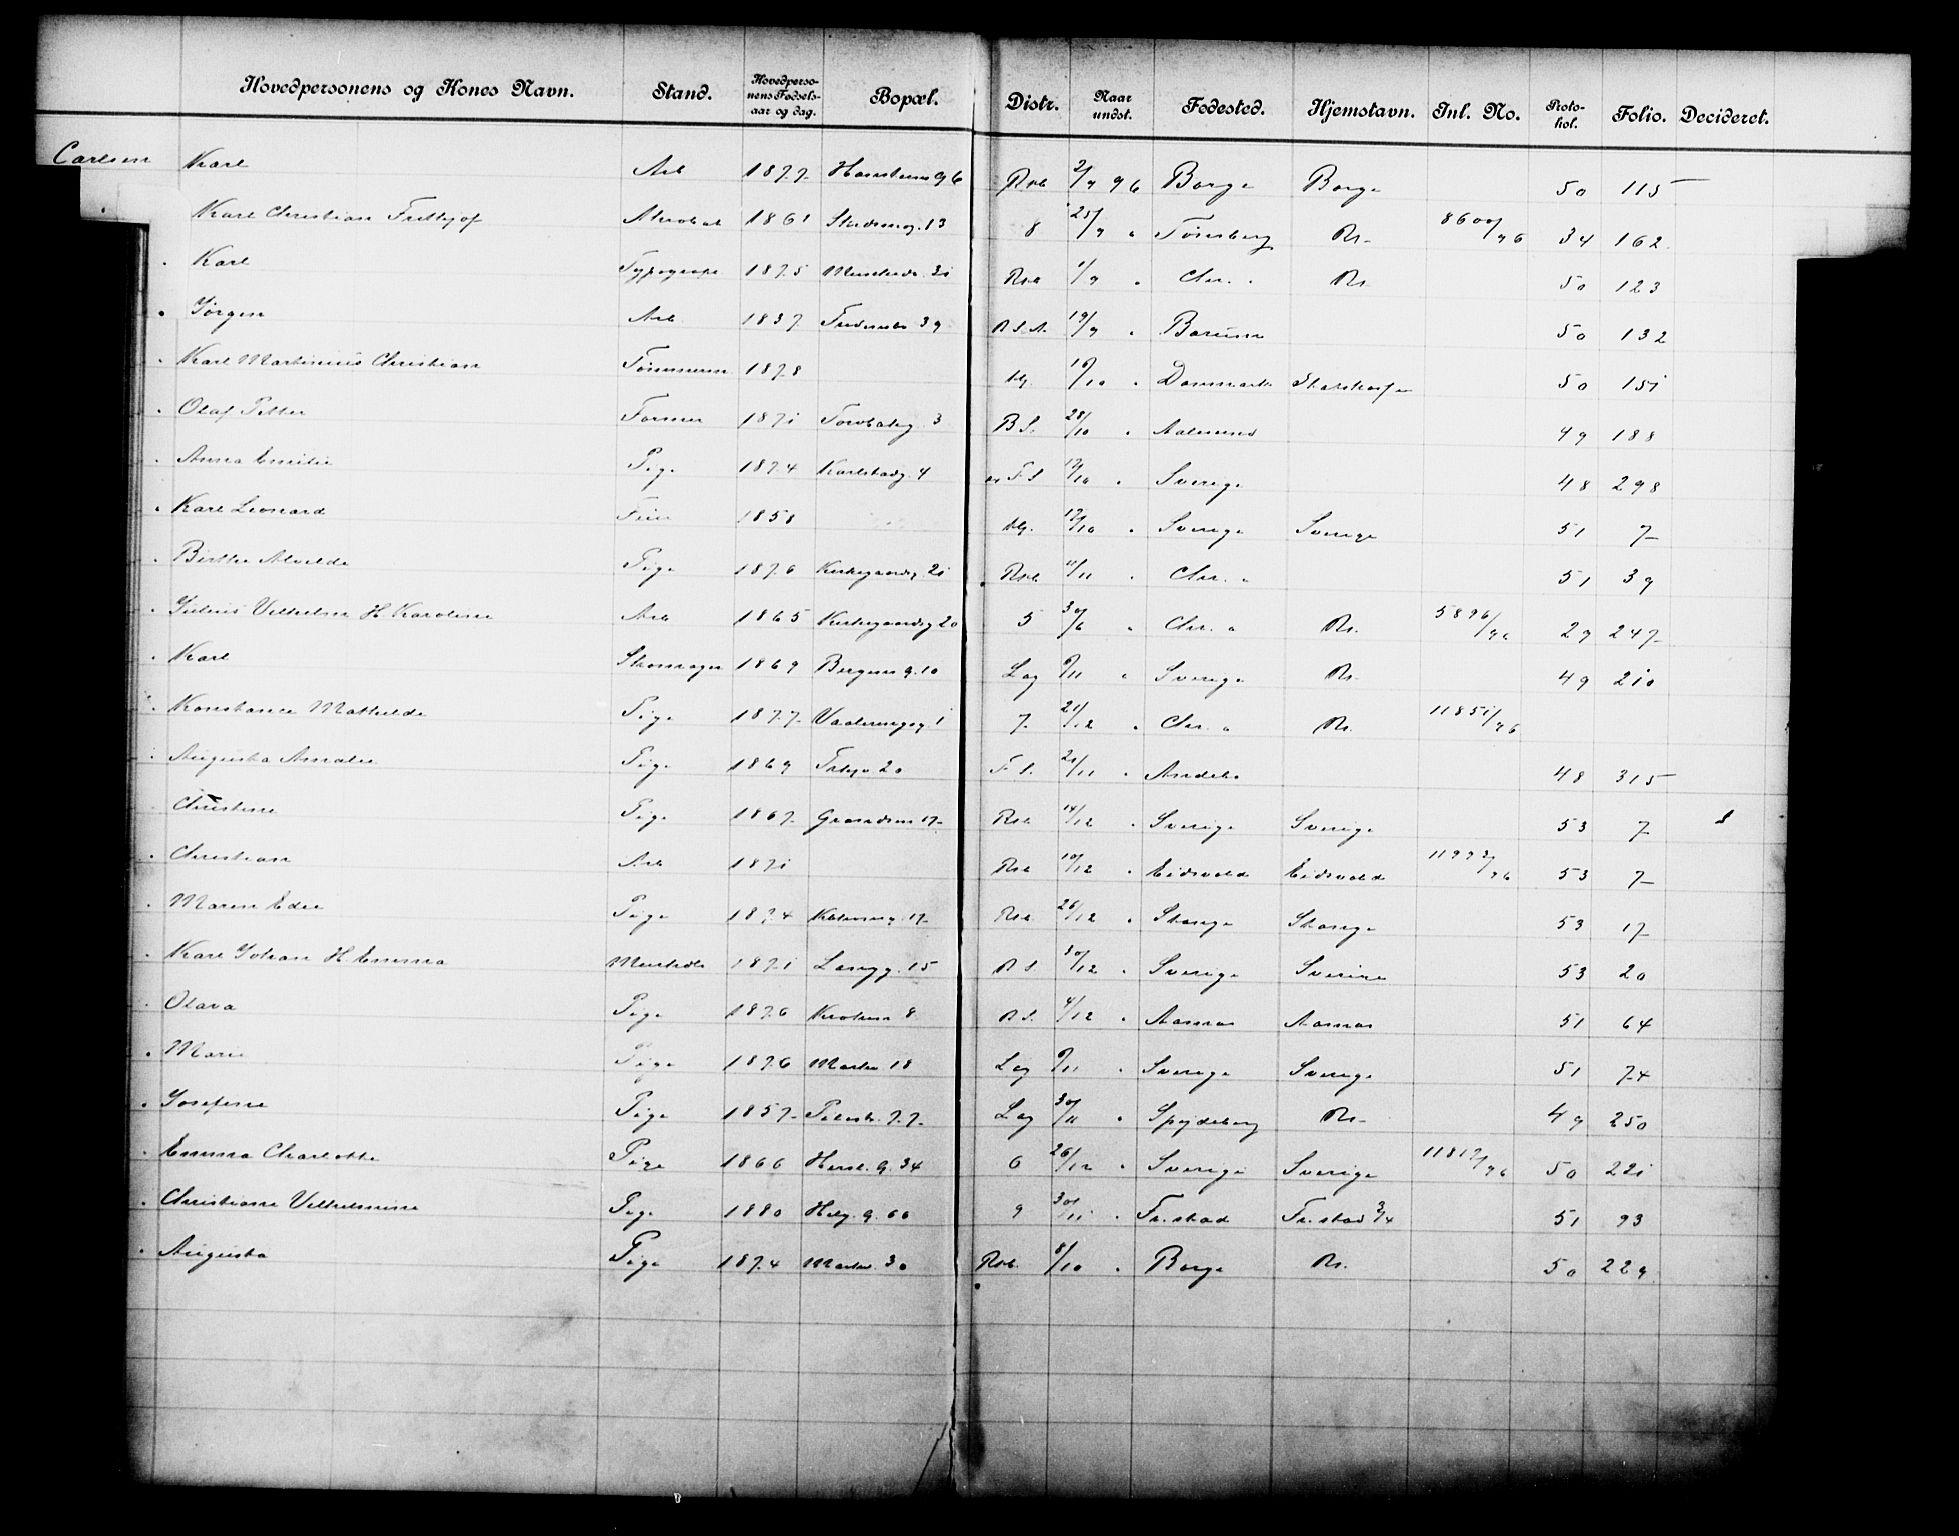 Hovedpersonens og Kones Navn. Stand. Hovedpersonens Fødselsaar og dag. Bopæl. Distr. Naar undst. Fødested. Hjemstavn. Inl. No. Protokol. Folio. Decideret.
Carlsen Karl Arb 1877 96 2/9 96 Borge Borge 50 115
Karl Christian Frithjof 1861 13 8 25/9 " Tønsberg Kr. 8600/96 34 162
Karl Typograf 1875 31 1/9 " Chr. " Kr. 50 123
Jørgen Arb. 1837 39 19/9 " Bærum 50 132
Karl Martinius Christian Tømmerm 1878 16/10 " Danmark 50 151
Olaf Petter Former 1871 Torvbakg. 3 B.S. 28/10 " Aalesund 49 188
Anna Emilie Pige 1874 Karlstadg 4 F.S 12/10 " Sverige 48 298
Karl Leonard 1858 12/10 " Sverige Sverige 51 7
Birthe Alvilde Pige 1876 Kirkegaardsg 21 11/11 " Chr. " 51 39
Julius Vilhelm H. Karoline Arb 1865 Kirkegaardsg 20 5 30/6 " Chr. " Kr. 5896/96 29 247
Karl Skomager 1869 Bergens g. 10 Lag 9/11 " Sverige Kr. 49 210
Konstance Mathilde Pige 1877 Vaalerengsg. 1 7 21/12 " Chr. " Kr. 11851/96
Augusta Amalie Pige 1869 20 F.S. 21/11 " Andebo 48 315
Christine Pige 1867 17 14/12 " Sverige Sverige 53 7
Christian Arb 1871 10/12 " Eidsvold Eidsvold 53 7
Maren Edie Pige 1874 17 26/12 " Stange Stange 53 17
Karl Johan H. Emma 1871 Langg. 15 30/12 " Sverige Sverige 53 20
Olava Pige 1876 8 4/12 " Aasnæs Aasnæs 51 64
Marie Pige 1876 18 Lag 9/11 " Sverige Sverige 51 74
Josefine Pige 1857 Pilestr. 77 Lag 30/11 " Spydeberg Kr. 49 250
Emma Charlotte Pige 1866 34 6 26/12 " Sverige Sverige 50 221
Christiane Vilhelmine Pige 1880 66 9 30/11 " Fr.stad Fr.stad 51 93
Augusta Pige 1874 30 8/10 " Borge Kr. 50 229